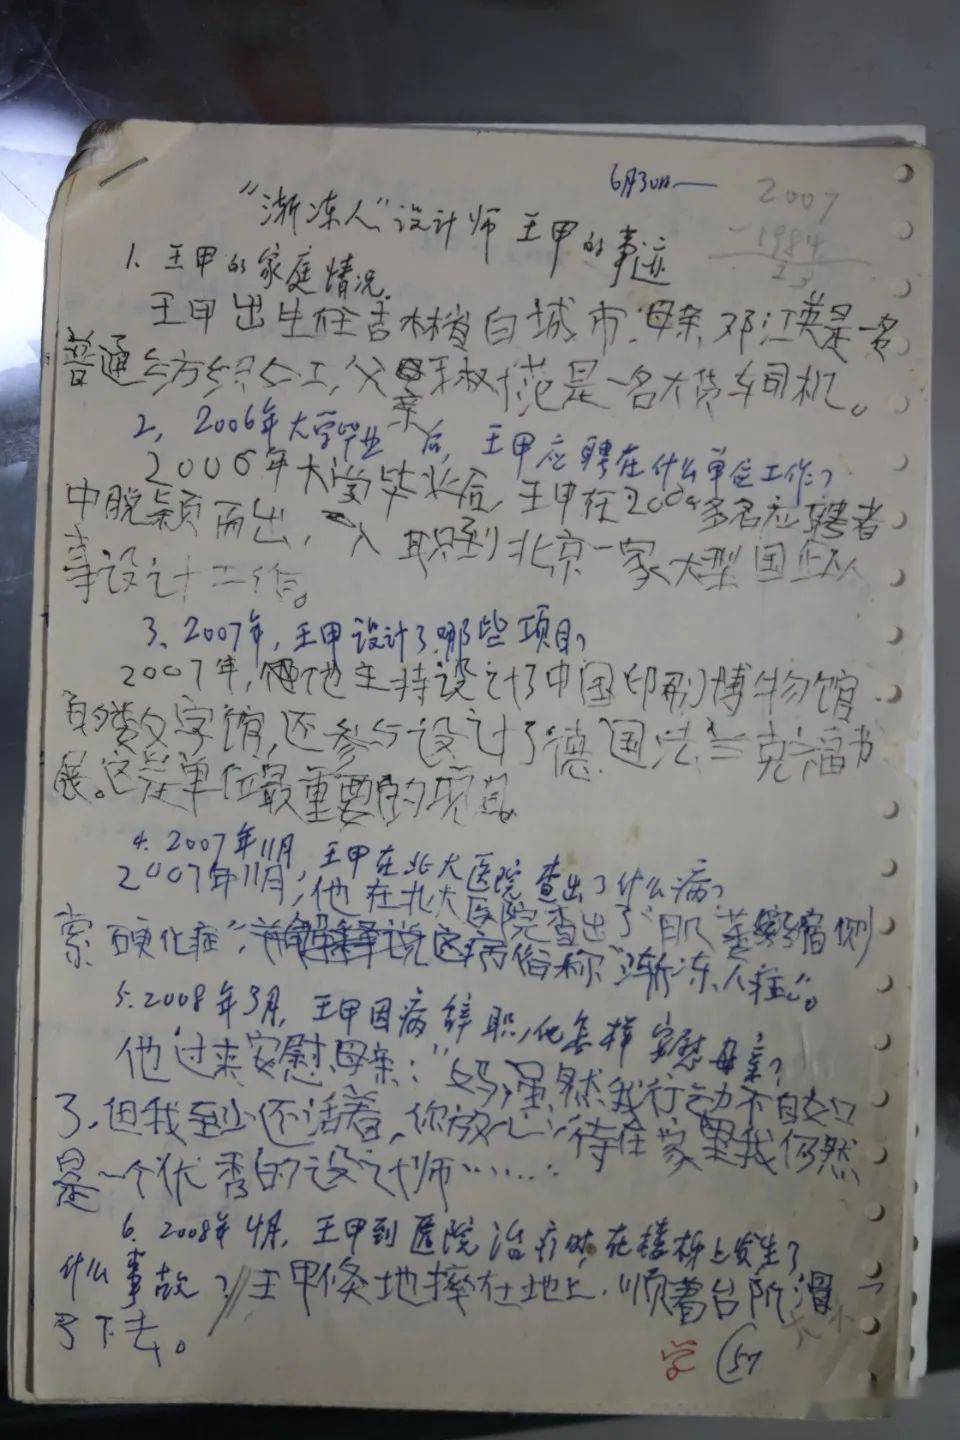 6月30日—
2007
-1984
23
“渐冻人”设计师王甲的事迹
1、王甲的家庭情况.
王甲出生在吉林省白城市,母亲邓江英是一名
普通纺织女工,父亲王叔范是一名大货车司机。
2、2006年大学毕业后,王甲应聘在什么单位工作?
2006年大学毕业后,王甲在200多名应聘者
中脱颖而出,入职到北京一家大型国企从
事设计工作。
3、2007年,王甲设计了哪些项目?
2007年,他主持设计了中国印刷博物馆
数字馆,还参与设计了德国法兰克福书
展。这是单位最重要的项目。
4.2007年11月,王甲在北大医院查出了什么病?
2007年11月,他在北大医院查出了“肌萎缩侧
索硬化症”,这病俗称“渐冻人症”。
5.2008年3月,王甲因病辞职,他怎样安慰母亲?
他过来安慰母亲:“妈,虽然我行动不自如
了,但我至少还活着,你放心,待在家里我仍然
是一个优秀的设计师……
6.2008年4月,王甲到医院治疗时,在楼梯上发生了
什么事故?//王甲倏地摔在地上,顺着台阶滑
了下去。
学 57